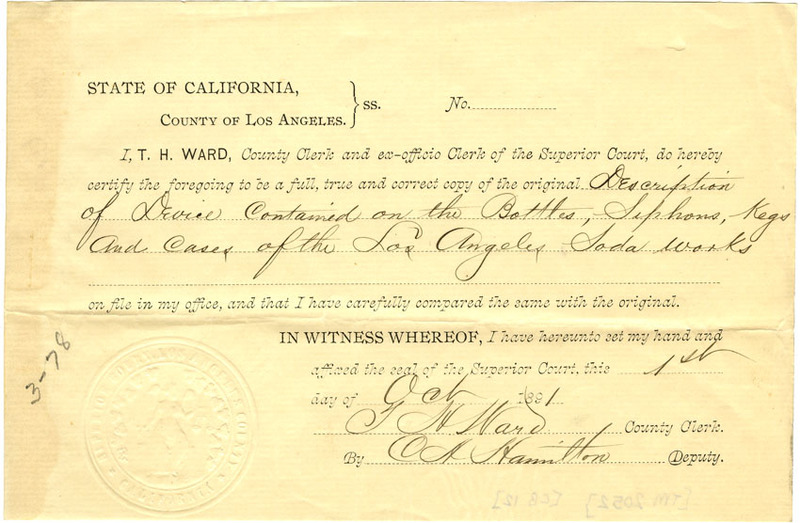 STATE OF CALIFORNIA,
COUNTY OF LOS ANGELES. } ss. No.
I, T. H. WARD, County Clerk and ex-officio Clerk of the Superior Court, do hereby
certify the foregoing to be a full, true and correct copy of the original Description
of Device Contained on the Bottles, Siphons, Kegs
And Cases of the Los Angeles Soda Works
on file in my office, and that I have carefully compared the same with the original.
IN WITNESS WHEREOF, I have hereunto set my hand and
affixed the seal of the Superior Court, this 1st
day of Oct 1891
T H Ward County Clerk.
By C A Hamilton Deputy.
3-78
[TM 2052] [CB 12]